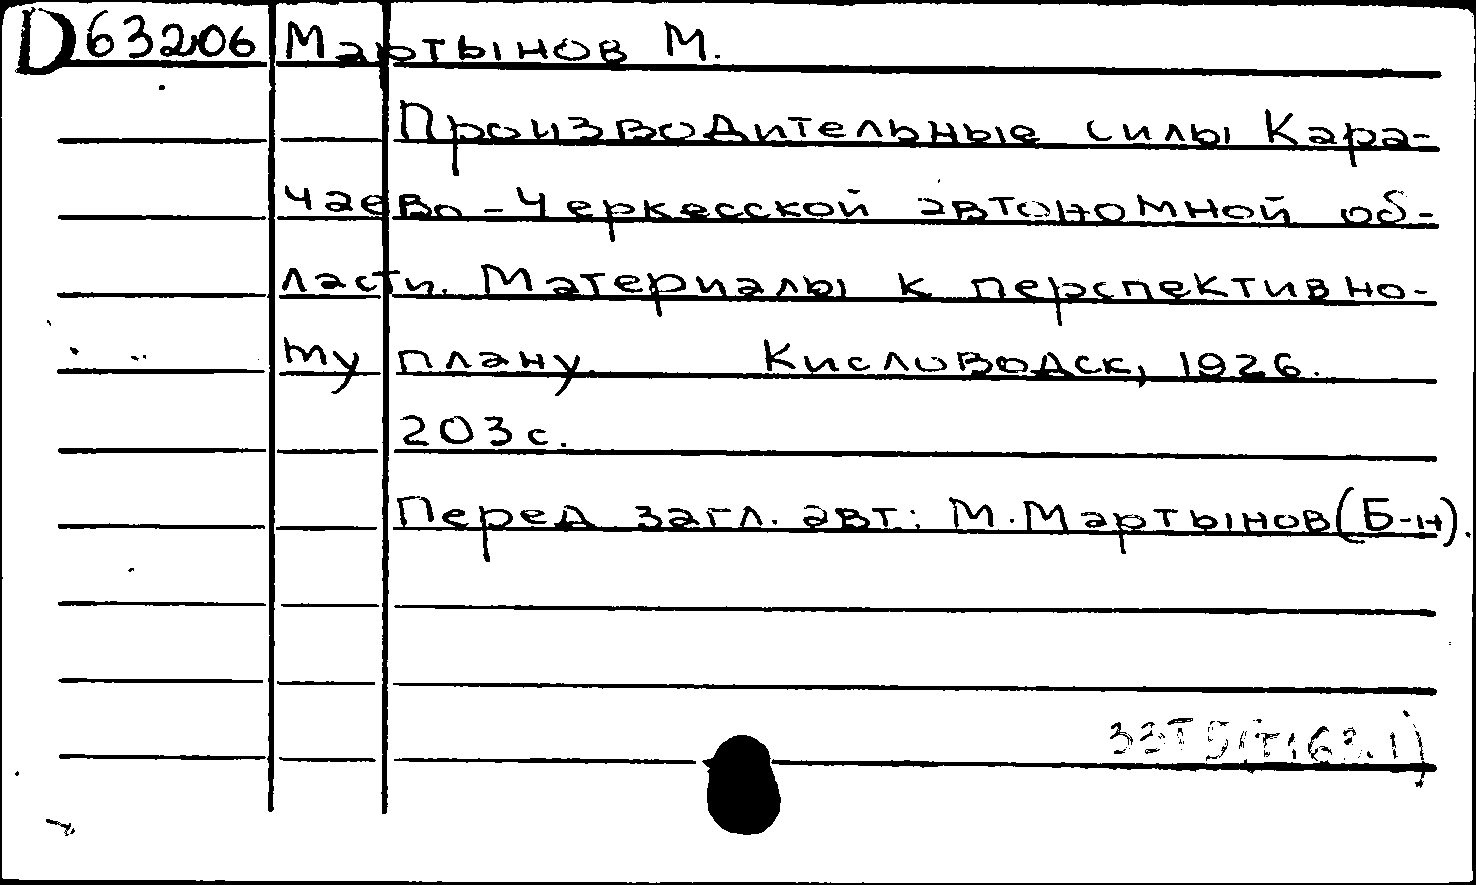 D63206 Мартынов М.
Производительные силы Кара-
чаево-Черкесской автономной об-
ласти. Материалы к перспективно-
му плану. Кисловодск, 1926.
203 с.
Перед загл. авт.: М. Мартынов (Б-н).